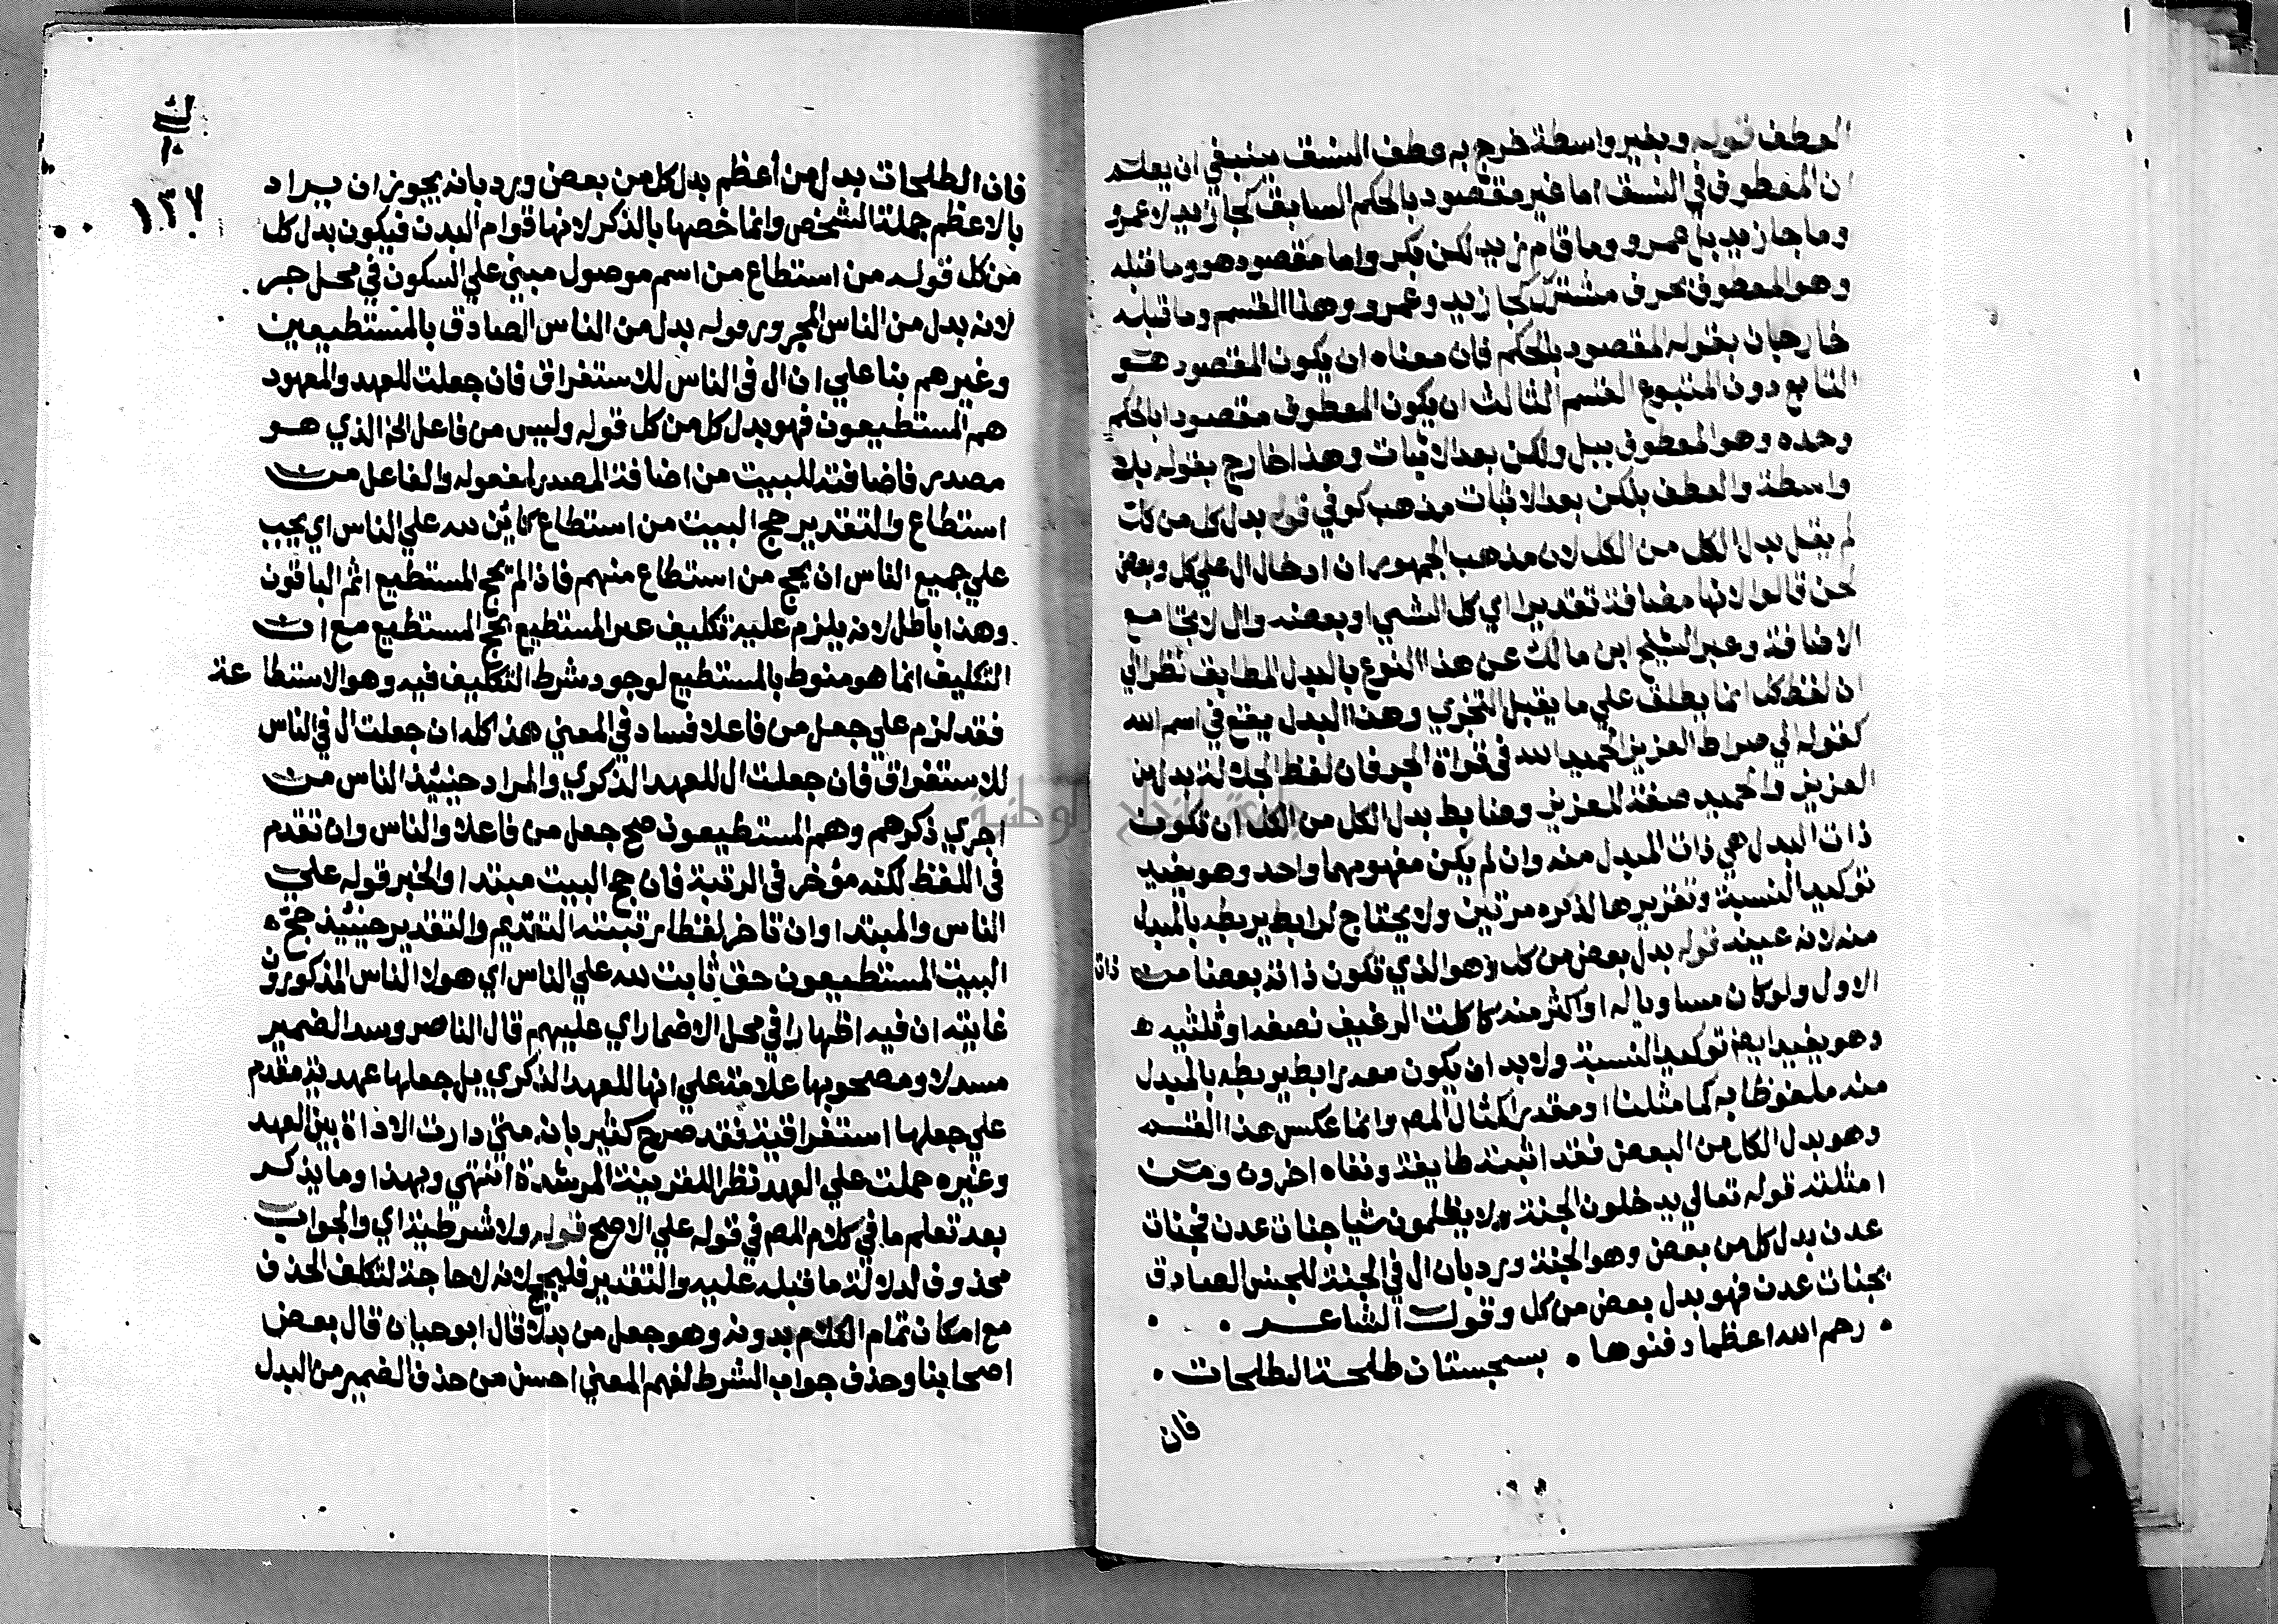 العطف قوله وبغير واسطة خرج به عطف النسق ينبغي ان يعلم
ان المعطوف في النسق اما غير مقصود بالحكم السابق كجا زيد لا عمرو
وما جا زيد بل عمرو وما قام زيد لكن بكر واما مقصود هو وما قبله
وهو المعطوف بحرف مشترك كجا زيد وعمرو وهذا القسم وما قبله
خارجان بقوله المقصود بالحكم فان معناه ان يكون المقصود هو
التابع دون المتبوع القسم الثالث ان يكون المعطوف مقصودا بالحكم
وحده وهو المعطوف ببل ولكن بعد الاثبات وهذا خارج بقوله بلا
واسطة والعطف بلكن بعد الاثبات مذهب كوفي قوله بدل كل من كل
لم يقل بدل الكل من الكل لان مذهب الجمهور ان ادخال ال علي كل وبعض
لحن قالوا لانها مضافة تقديرا اي كل الشي او بعضه وال لا تجامع
الاضافة وعبر الشيخ ابن مالك عن هذا النوع بالبدل المطابق نظرا الي
ان لفظ كل انما يطلق علي ما يقبل التجزي وهذا البدل يقع في اسم الله
كقوله الي صراط العزيز الحميد الله في قراة الجر فان لفظ الجلالة بدل من
العزيز والحميد صفة للعزيز وضابط بدل الكل من الكل ان تكون
ذات البدل هي ذات المبدل منه وان لم يكن مفهومهما واحد وهو يفيد
توكيد النسبة وتقريرها لذكره مرتين ولا يحتاج لرابط يربطه بالمبدل
منه لانه عينه قوله بدل بعض من كل وهو الذي تكون ذاته بعضا من ذات
الاول ولو كان مساويا له او اكثر منه كاكلت الرغيف نصفه او ثلثيه
وهو يفيد ايضا توكيد النسبة ولا بد ان يكون معه رابط يربطه بالمبدل
منه ملفوظا به كما مثلنا او مقدر كمثال المص وانما عكس هذا القسم
وهو بدل الكل من البعض فقد اثبته طايفة ونفاه اخرون ومن
امثلته قوله تعالي يدخلون الجنة ولا يظلمون شيا جنات عدن فجنات
عدن بدل كل من بعض وهو الجنة ورد بان ال في الجنة للجنس الصادق
بجنات عدن فهو بدل بعض من كل وقول الشاعر
رحم الله اعظما دفنوها بسجستان طلحة الطلحات
فان
١٣٧
فان الطلحات بدل من أعظم بدل كل من بعض ورد بانه يجوز ان يراد
بالاعظم جملة الشخص وانما خصها بالذكر لانها قوام البدن فيكون بدل كل
من كل قوله من استطاع من اسم موصول مبني علي السكون في محل جر
لانه بدل من الناس المجرور وقوله بدل من الناس الصادق بالمستطيعين
وغيرهم بنا علي ان ال في الناس للاستغراق فان جعلت للعهد والمعهود
هم المستطيعون فهو بدل كل من كل قوله وليس من فاعل الخ الذي هو
مصدر فاضافته للبيت من اضافة المصدر لمفعوله والفاعل من
استطاع والتقدير حج البيت من استطاع كائن لله علي الناس اي يجب
علي جميع الناس ان يحج من استطاع منهم فاذا لم يحج المستطيع اثم الباقون
وهذا باطل لانه يلزم عليه تكليف غير المستطيع بحج المستطيع مع ان
التكليف انما هو منوط بالمستطيع لوجود شرط التكليف فيه وهو الاستطاعة
فقد لزم علي جعل من فاعلا فساد في المعني هذا كله ان جعلت ال في الناس
للاستغراق فان جعلت ال للعهد الذكري والمراد حينيذ الناس من
اجري ذكرهم وهم المستطيعون صح جعل من فاعلا والناس وان تقدم
في اللفظ لكنه مؤخر في الرتبة فان حج البيت مبتدا والخبر قوله علي
الناس والمبتدا وان تاخر لفظا رتبته التقديم والتقدير حينيذ حج
البيت المستطيعون حق ثابت لله علي الناس اي هولا الناس المذكورون
غايته ان فيه اظهارا في محل الاضمار اي عليهم قال الناصر وسد الضمير
مسد لا ومصحوبها علامة علي انها للعهد الذكري بل جعلها عهدية مقدم
علي جعلها استغراقية فقد صرح كثير بانه متي دارت الاداة بين العهد
وغيره حملت علي العهد نظرا للقرينة المرشدة انتهي وبهذا وما يذكر
بعد تعلم ما في كلام المص في قوله علي الاصح قوله ولا شرطية اي والجواب
محذوف لدلالة ما قبله عليه والتقدير فليحج لانه لا حاجة لتكلف الحذف
مع امكان تمام الكلام بدونه وهو جعل من بدلا قال ابو حيان قال بعض
اصحابنا وحذف جواب الشرط لفهم المعني احسن من حذف الضمير من البدل
جامعة النجاح الوطنية